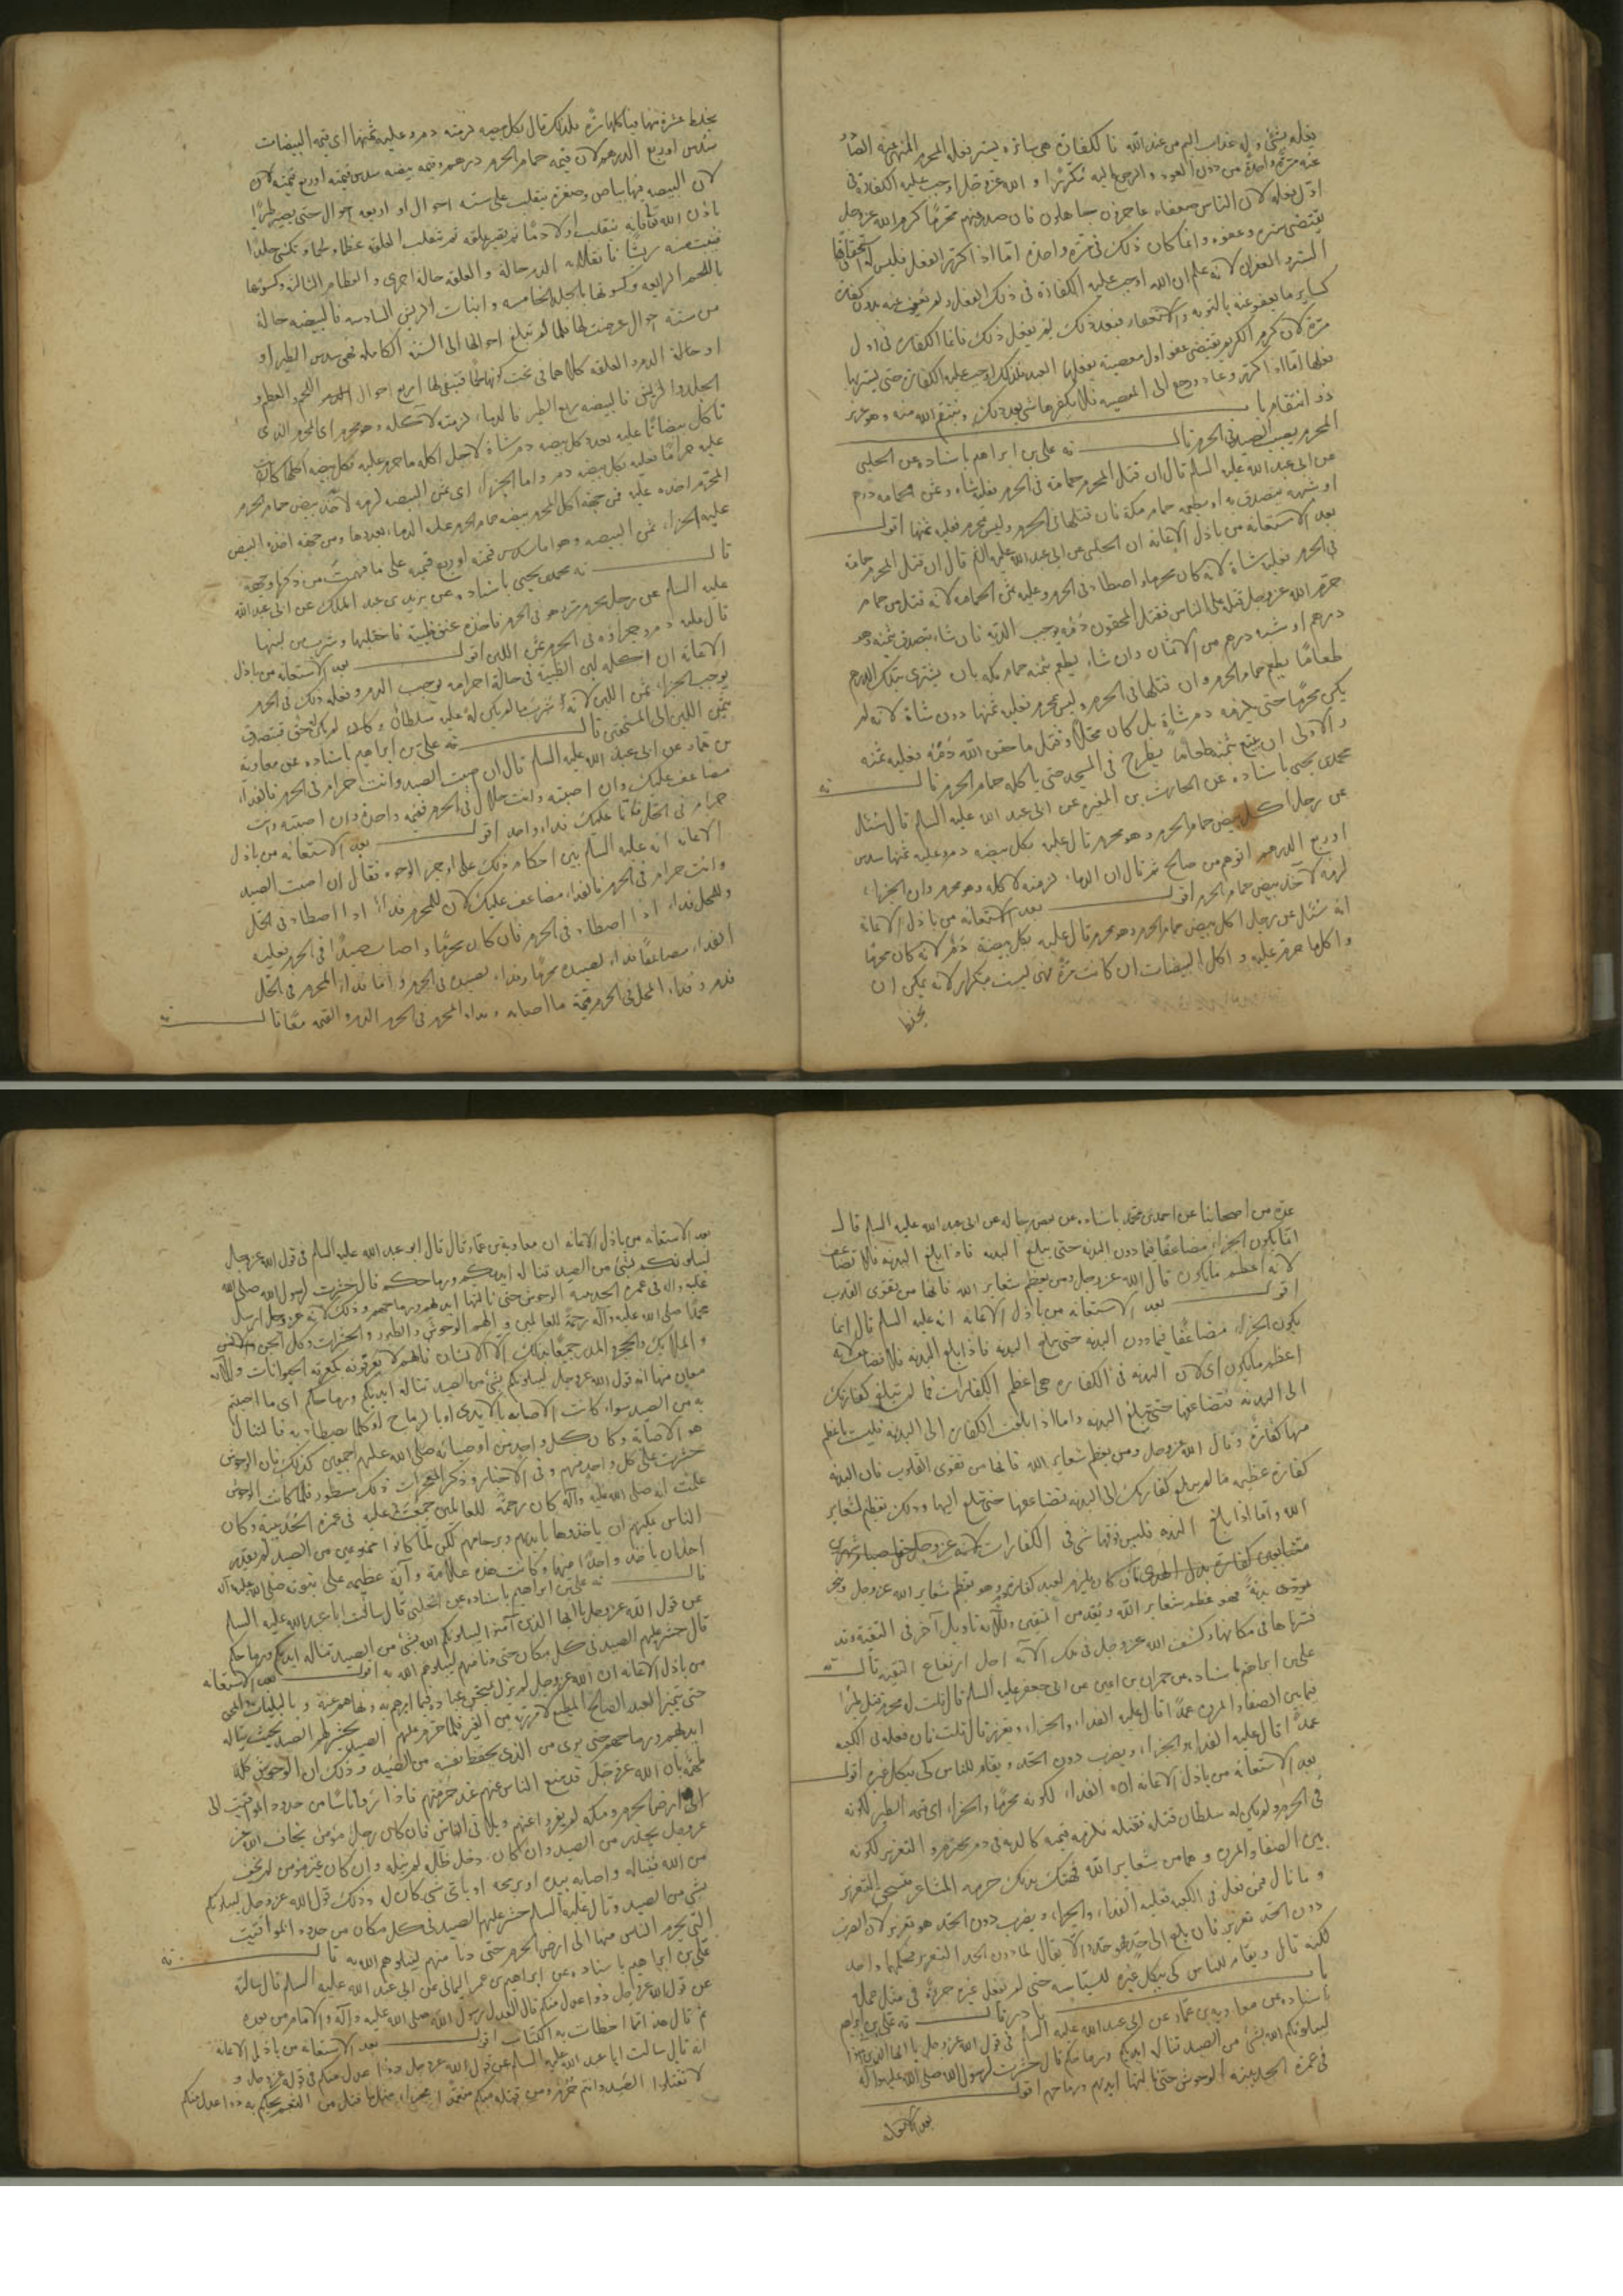 يفعله بشئ وله عذاب اليم من عند الله فالكفارة هى ساترة يستر فعله المحرم المنهى عنه
عنه مرة واحدة من دون العود والرجوع اليه تكررا والله عز وجل اوجب عليه الكفارة فى
اول فعله لان الناس ضعفاء عاجزون جاهلون فان صدر منهم محرما كرم الله عز وجل
يقتضى ستره وعفوه وانما كان ذلك فى مرة واحدة اما اذا كرر الفعل فليس له استحقاق
الستر والغفران لانه علم ان الله اوجب عليه الكفارة فى ذلك الفعل ولم يعف عنه بدون كفارة
كساير ما يعفو عنه بالتوبة والاستغفار فبعد ذلك لم يفعل ذلك فانما الكفارة فى اول
مرة لان كرم الكريم يقتضى عفو اول معصية يفعلها العبد فلذلك اوجب عليه الكفارة حتى يسترها
فعلها اما اذا كرر وعاد ورجع الى المعصية فلا يكفرها شئ بعد ذلك وينتقم الله منه وهو عزيز
ذو انتقام باب
المحرم يصيب الصيد فى الحرم قال نه على بن ابراهيم باسناده عن الحلبى
عن ابى عبد الله عليه السلم قال ان قتل المحرم حمامة فى الحرم فعليه شاة وثمن الحمامة درهم
او شبهه يتصدق به او يطعمه حمام مكة فان قتلها فى الحرم وليس بمحرم فعليه ثمنها اقول
بعد الاستعانة من باذل الاعانة ان الحلبى عن ابى عبد الله عليه السلم قال ان قتل المحرم حمامة
فى الحرم فعليه شاة لانه كان محرما واصطاد فى الحرم وعليه ثمن الحمامة لانه قتل من حمام
حرم الله عز وجل قتله على الناس فقتل المحقون دمه يوجب الدية فان شاء يتصدق بثمنه وهو
درهم او شبه درهم من الاثمان وان شاء يطعم بثمنه حمام مكة بان يشترى بتلك الدرهم
طعاما يطعم حمام الحرم وان قتلها فى الحرم وليس بمحرم فعليه ثمنها دون شاة لانه لم
يكن محرما حتى يلزمه دم شاة بل كان محلا وقتل ما حقن الله دمه فعليه ثمنه
والاولى ان يبتع بثمنه طعاما يطرح فى المسجد حتى ياكله حمام الحرم قال نه
محمد بن يحيى باسناده عن الحارث بن المغيرة عن ابى عبد الله عليه السلم قال سئل
عن رجل اكل بيض حمام الحرم وهو محرم قال عليه بكل بيضة دم وعليه ثمنها سدس
او ربع الدرهم الوهم من صالح ثم قال ان الدماء لزمته لاكله وهو محرم وان الجزاء
لزمه لاخذه بيض حمام الحرم اقول بعد الاستعانة من باذل الاعانة
انه سئل عن رجل اكل بيض حمام الحرم وهو محرم قال عليه بكل بيضة دم لانه كان محرما
واكلها حرم عليه واكل البيضات ان كانت مرة فهى ليست بتكرار لانه يمكن ان
يخلط
يخلط عشرة منها فياكلها مرة فلذلك قال بكل بيضة لزمته دم وعليه ثمنها اى قيمة البيضات
سدس او ربع الدرهم لان قيمة حمام الحرم درهم وقيمة بيضة سدس قيمته او ربع قيمته لان
لان البيضة فيها بياض وصفرة ينقلب على ستة احوال او اربعة احوال حتى يصير طيرا
باذن الله فانها ينقلب اولا دما ثم يصير علقة ثم تنقلب العلقة عظاما ولحما وتكسى جلدا
فينبت منه ريشا فانقلاب الدم حالة والعلقة حالة اخرى والعظام الثالثة وكسوتها
باللحم الرابعة وكسوتها بالجلد الخامسة وانبات الريش السادسة فالبيضة حالة
من ستة احوال عرضت لها فلما لم تبلغ احوالها الى الستة الكاملة فهى سدس الطير او
او حالة الدم والعلقة كلاهما فى تحت كونهما لحما فتبقى لها اربع احوال الدم اللحم والعظم و
الجلد والريش فالبيضة ربع الطير فالدماء لزمته لاكله وهو محرم اى المحرم الذى
تاكل بيضاتا عليه بعدد كل بيضة دم شاة لاجل اكله ما حرم عليه فكل بيضة اكلها كانت
عليه حراما فعليه بكل بيضة دم واما الجزاء اى ثمن البيضة لزمه لاخذه بيض حمام الحرم
المحرم اخذه عليه فمن جهة اكل المحرم بيضة حمام الحرم عليه الدماء بعددها ومن جهة اخذه البيض
عليه الجزاء ثمن البيضة وهو اما سدس قيمته او ربع قيمته على ما فهمت من ذكرها وجهة
قال نه محمد بن يحيى باسناده عن يزيد بن عبد الملك عن ابى عبد الله
عليه السلم عن رجل محرم مر وهو فى الحرم فاخذ عنق ظبية فاحتلبها وشرب من لبنها
قال عليه دم وجزاؤه فى الحرم ثمن اللبن اقول بعد الاستعانة من باذل
الاعانة ان اكله لبن الظبية فى حالة احرامه يوجب الدم وفعله ذلك فى الحرم
يوجب الجزاء ثمن اللبن لانه شرب ما لم يكن له عليه سلطان وكان لم يكن يحق فيتصدق
بثمن اللبن الى المستحقين قال نه على بن ابراهيم باسناده عن معاوية
بن عمار عن ابى عبد الله عليه السلم قال ان اصبت الصيد وانت حرام فى الحرم فالفداء
مضاعف عليك وان اصبته وانت حلال فى الحرم فقيمة واحدة وان اصبته وانت
حرام فى الحل فانما عليك فداء واحد اقول بعد الاستعانة من باذل
الاعانة انه عليه السلم بين احكام ذلك على اوجز الوجوه فقال ان اصبت الصيد
وانت حرام فى الحرم فالفداء مضاعف عليك لان للمحرم فداء اذا اصطاد فى الحل
وللمحل فداء اذا اصطاد فى الحرم فان كان محرما واصاب صيدا فى الحرم فعليه
الفداء مضاعفا فداء لصيده محرما وفداء لصيده فى الحرم واما فداء المحرم فى الحل
فدم وفداء المحل فى الحرم قيمة ما اصابه وفداء المحرم فى الحرم الدم والقيمة معا قال نه
عدة من اصحابنا عن احمد بن محمد باسناده عن بعض رجاله عن ابى عبد الله عليه السلم قال
انما يكون الجزاء مضاعفا فيما دون البدنة حتى يبلغ البدنة فاذا بلغ البدنة فلا تضاعف
لانه اعظم ما يكون قال الله عز وجل ومن يعظم شعاير الله فانها من تقوى القلوب
اقول بعد الاستعانة من باذل الاعانة انه عليه السلم قال انما
يكون الجزاء مضاعفا فيما دون البدنة حتى يبلغ البدنة فاذا بلغ البدنة فلا تضاعف لانه
اعظم ما يكون اى لان البدنة فى الكفارة هى اعظم الكفارات فما لم تبلغ كفارتك
الى البدنة فتضاعفها حتى تبلغ البدنة واما اذا بلغت الكفارة الى البدنة فليست باعظم
منها كفارة وقال الله عز وجل ومن يعظم شعاير الله فانها من تقوى القلوب فان البدنة
كفارة عظيمة فما لم يبلغ كفارتك الى البدنة تضاعفها حتى تبلغ اليها وذلك تعظيم لشعاير
الله واما اذا بلغ البدنة فليس فوقها شئ فى الكفارات لانه عز وجل جعل صيام شهرين
متتابعين كفارة بدل الهدى كان يلزم لعبد كفارة وهو تعظيم شعاير الله عز وجل ومن
يؤدى بدنة فهو عظم شعاير الله ويعد من المتقين وللآية تاويل آخر فى التقية وقد
فسرناها فى مكانها وكشف الله عز وجل فى تلك الآية اجل ارتفاع التقية قال نه
على بن ابراهيم باسناده عن حمران بن اعين عن ابى جعفر عليه السلم قال قلت له محرم قتل طيرا
فيما بين الصفا والمروة عمدا قال عليه الفداء والجزاء ويعزر قال قلت فان فعله فى الكعبة
عمدا قال عليه الفداء والجزاء ويضرب دون الحد ويقام للناس كى ينكل غيره اقول
بعد الاستعانة من باذل الاعانة ان الفداء لكونه محرما والجزاء اى قيمة الطير لكونه
فى الحرم ولم يكن له سلطان قتله فقتله فلزمه قيمته كالدية فى دم محترم والتعزير لكونه
بين الصفا والمروة وهما من شعاير الله فهتك بذلك حرمة المشاعر فيستحق التعزير
وما قال فمن فعل فى الكعبة فعليه الفداء والجزاء ويضرب دون الحد هو تعزير لان الضرب
دون الحد تعزير فان بلغ الى حد فهو حد ولا يقال لما دون الحد التعزير فكلهما واحد
لكنه قال ويقام للناس كى ينكل غيره للسياسة حتى لم يفعل غيره جرمة فى مثل عمله
باب نادر قال نه على بن ابراهيم
باسناده عن معاوية بن عمار عن ابى عبد الله عليه السلم فى قول الله عز وجل يا ايها الذين آمنوا
ليبلونكم الله بشئ من الصيد تناله ايديكم ورماحكم قال حشرت لرسول الله صلى الله عليه وآله
فى عمرة الحديبية الوحوش حتى نالتها ايديهم ورماحهم اقول
بعد الاستعانة
بعد الاستعانة من باذل الاعانة ان معاوية بن عمار قال قال ابو عبد الله عليه السلم فى قول الله عز وجل
ليبلونكم بشئ من الصيد تناله ايديكم ورماحكم قال حشرت لرسول الله صلى الله
عليه وآله فى عمرة الحديبية الوحوش حتى نالتها ايديهم ورماحهم وذلك لانه عز وجل ارسل
محمدا صلى الله عليه وآله رحمة للعالمين والهم الوحوش والطيور والحشرات وكل الجن والانس
والملائكة والحجر والمدر جميعا بذلك الا الانسان فانهم لا يعرفونه كمعرفة الحيوانات وللآية
معان منها انه قول الله عز وجل ليبلونكم بشئ من الصيد تناله ايديكم ورماحكم اى ما اصبتم
به من الصيد سواء كانت الاصابة بالايدى او بالرماح او كلما يصطاد به فالمنال
هو الاصابة وكان كل واحد من اوصيائه صلى الله عليهم اجمعين كذلك فان الوحوش
حشرت على كل واحد منهم وفى الاخبار وذكر المعجزات ذلك مسطور فلما كانت الوحوش
علمت انه صلى الله عليه وآله كان رحمة للعالمين جمعت عليه فى عمرة الحديبية وكان
الناس يمكنهم ان ياخذوها بايديهم وبرماحهم لكن لما كانوا ممنوعين من الصيد لم يقدر
احد ان ياخذ واحدا منها وكانت هذه علامة وآية عظيمة على نبوته صلى الله عليه وآله
قال نه على بن ابراهيم باسناده عن الحلبى قال سالت ابا عبد الله عليه السلم
عن قول الله عز وجل يا ايها الذين آمنوا ليبلونكم الله بشئ من الصيد تناله ايديكم ورماحكم
قال حشر عليهم الصيد فى كل مكان حتى دنا منهم ليبلوهم الله به اقول بعد الاستعانة
من باذل الاعانة ان الله عز وجل لم يزل يمتحن عباده فيما امرهم به ونهاهم عنه وبالبليات
حتى يتميز العبد الصالح المطيع لامر ربه من الغير فلما حرم عليهم الصيد يحشر لهم الصيد بحيث يناله
ايديهم ورماحهم حتى يرى من الذى يحفظ نفسه من الصيد وذلك ان الوحوش كلها
ملهمة بان الله عز وجل قد منع الناس عنهم عند حرمتهم فاذا راوا ناسا من حدود المواقيت الى
الى ارض الحرم ومكة لم يفروا عنهم ويلاقى الناس فان كان رجل مؤمن يخاف الله عز
وجل يحذر من الصيد وان كان دخل ظله لم ينله وان كان غير مؤمن لم يخف
من الله فيناله واصابه بيده او برمحه او باى شئ كان له وذلك قول الله عز وجل ليبلونكم
بشئ من الصيد وقال عليه السلم حشر عليهم الصيد فى كل مكان من حدود المواقيت
التى يحرم الناس منها الى ارض الحرم حتى دنا منهم ليبلوهم الله به قال نه
على بن ابراهيم باسناده عن ابراهيم بن عمر اليمانى عن ابى عبد الله عليه السلم قال سالته
عن قول الله عز وجل ذوا عدل منكم قال العدل رسول الله صلى الله عليه وآله والامام من بعده
ثم قال هذا مما اخطات به الكتاب اقول بعد الاستعانة من باذل الاعانة
انه قال سالت ابا عبد الله عليه السلم عن قول الله عز وجل ذوا عدل منكم فى قوله عز وجل و
لا تقتلوا الصيد وانتم حرم ومن قتله منكم متعمدا فجزاء مثل ما قتل من النعم يحكم به ذوا عدل منكم